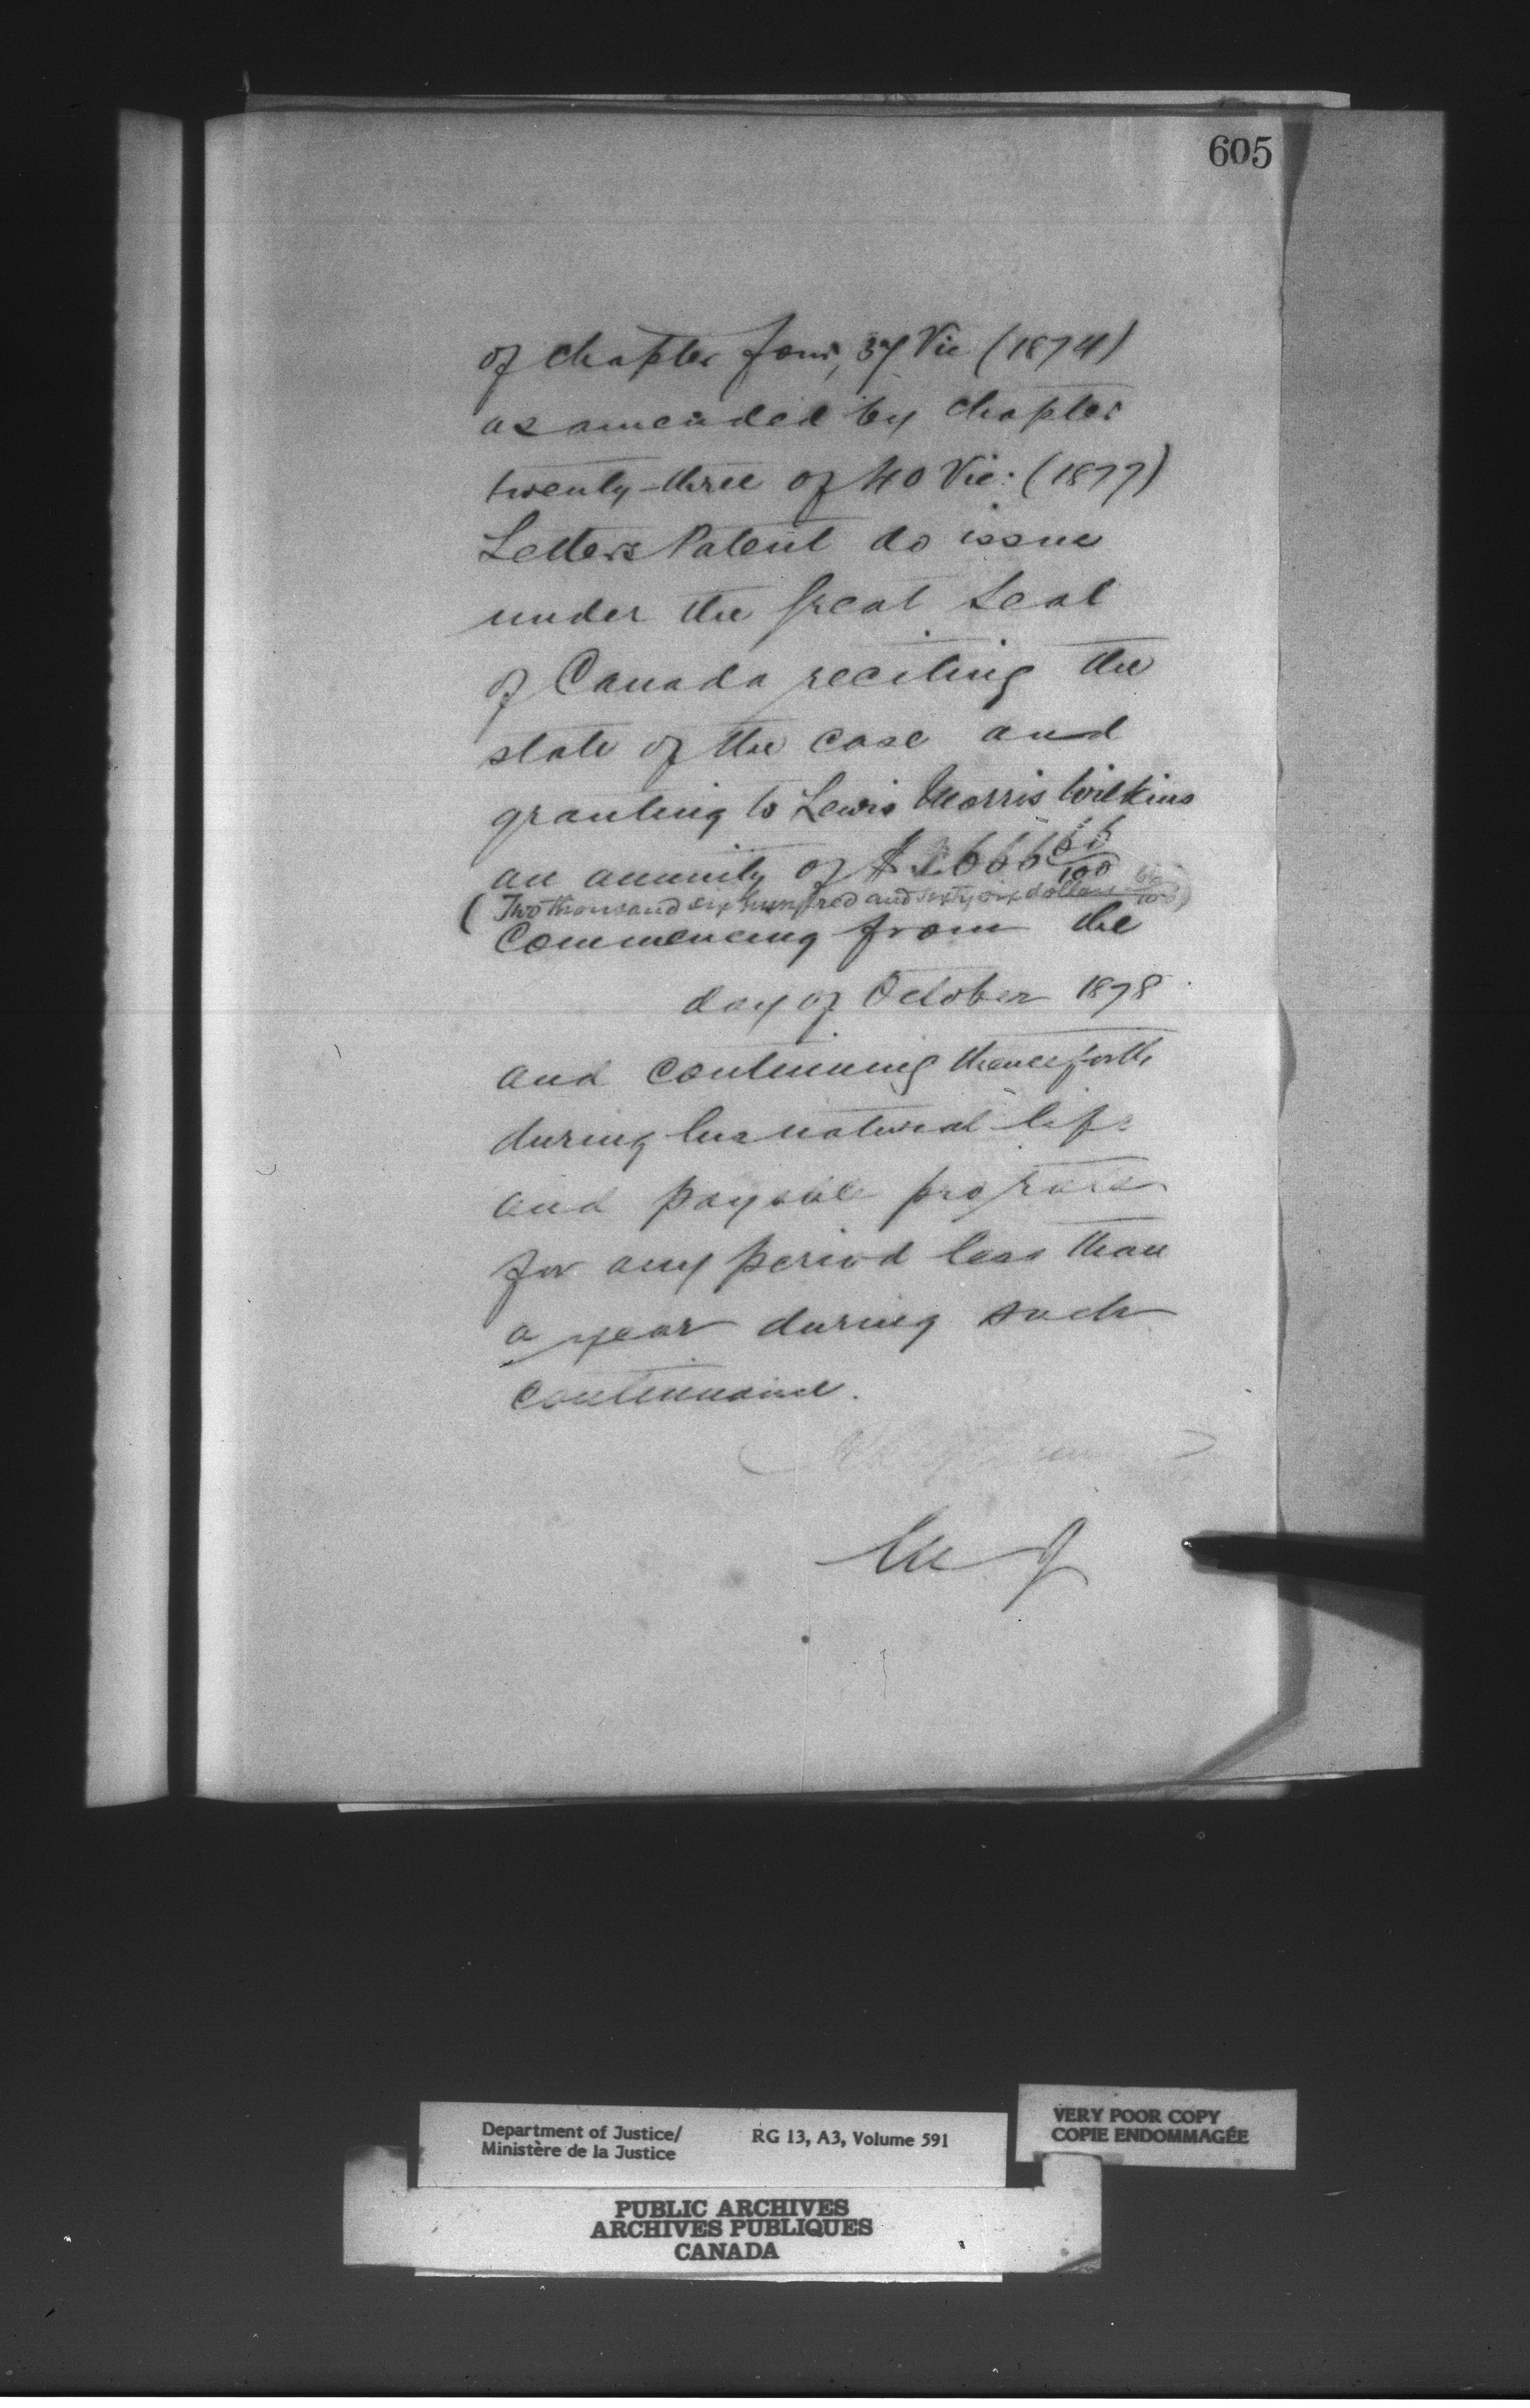 605
of chapter four, 37 Vic (1874)
as amended by chapter
twenty-three of 40 Vic: (1877)
Letters Patent do issue
under the Great Seal
of Canada reciting the
state of the case and
granting to Lewis Morris Wilkins
an annuity of $2666 66/100
(Two thousand six hundred and sixty six dollars 66/100)
Commencing from the
day of October 1878
and continuing thenceforth
during his natural life
and payable pro rata
for any period less than
a year during such
continuance.
Department of Justice/
Ministère de la Justice
RG 13, A3, Volume 591
VERY POOR COPY
COPIE ENDOMMAGÉE
PUBLIC ARCHIVES
ARCHIVES PUBLIQUES
CANADA